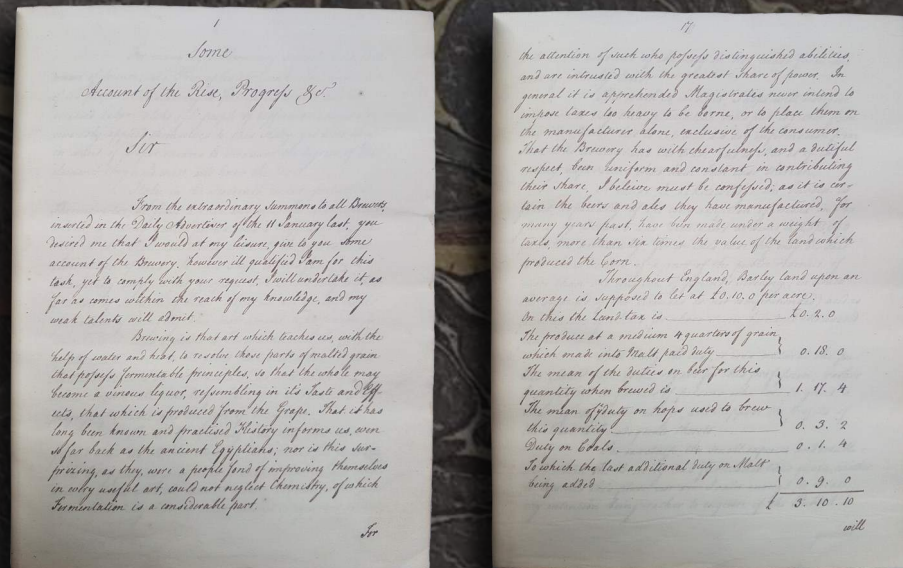 1
Some
Account of the Rise, Progress &c.
Sir
From the extraordinary Summons to all Brewers,
inserted in the Daily Advertiser of the 11 January last, you
desired me that I would at my leisure, give to you some
account of the Brewery. however ill qualified I am for this
task, yet to comply with your request, I will undertake it, as
far as comes within the reach of my knowledge, and my
weak talents will admit.
Brewing is that art which teaches us, with the
help of water and heat, to resolve those parts of malted grain
that possess fermentable principles, so that the whole may
become a vinous liquor, resembling in it's Taste and Eff-
ects, that which is produced from the Grape. That it has
long been known and practised History informs us, even
so far back as the ancient Egyptians; nor is this sur-
prizing, as they, were a people fond of improving themselves
in every useful art, could not neglect Chemistry, of which
Fermentation is a considerable part.
For
17
the attention of such who possess distinguished abilities,
and are intrusted with the greatest share of power. In
general it is apprehended Magistrates never intend to
impose taxes too heavy to be borne, or to place them on
the manufacturer alone, exclusive of the consumer.
That the Brewery has with chearfulness, and a dutiful
respect, been uniform and constant in contributing
their share, I beleive must be confessed, as it is cer-
tain the beers and ales they have manufactured, for
many years past, have been made under a weight of
taxes more than six times the value of the land which
produced the Corn.
Throughout England, Barley land upon an
average is supposed to let at £0.10.0 per acre.
On this the Land tax is £0.2.0
The produce at a medium 4 quarters of grain
which made into Malt paid duty 0.18.0
The mean of the duties on beer for this
quantity when brewed is 1.17.4
The mean of ye duty on hops used to brew
this quantity 0.3.2
Duty on Coals 0.1.4
To which the last additional duty on Malt
being added 0.9.0
£ 3.10.10
will